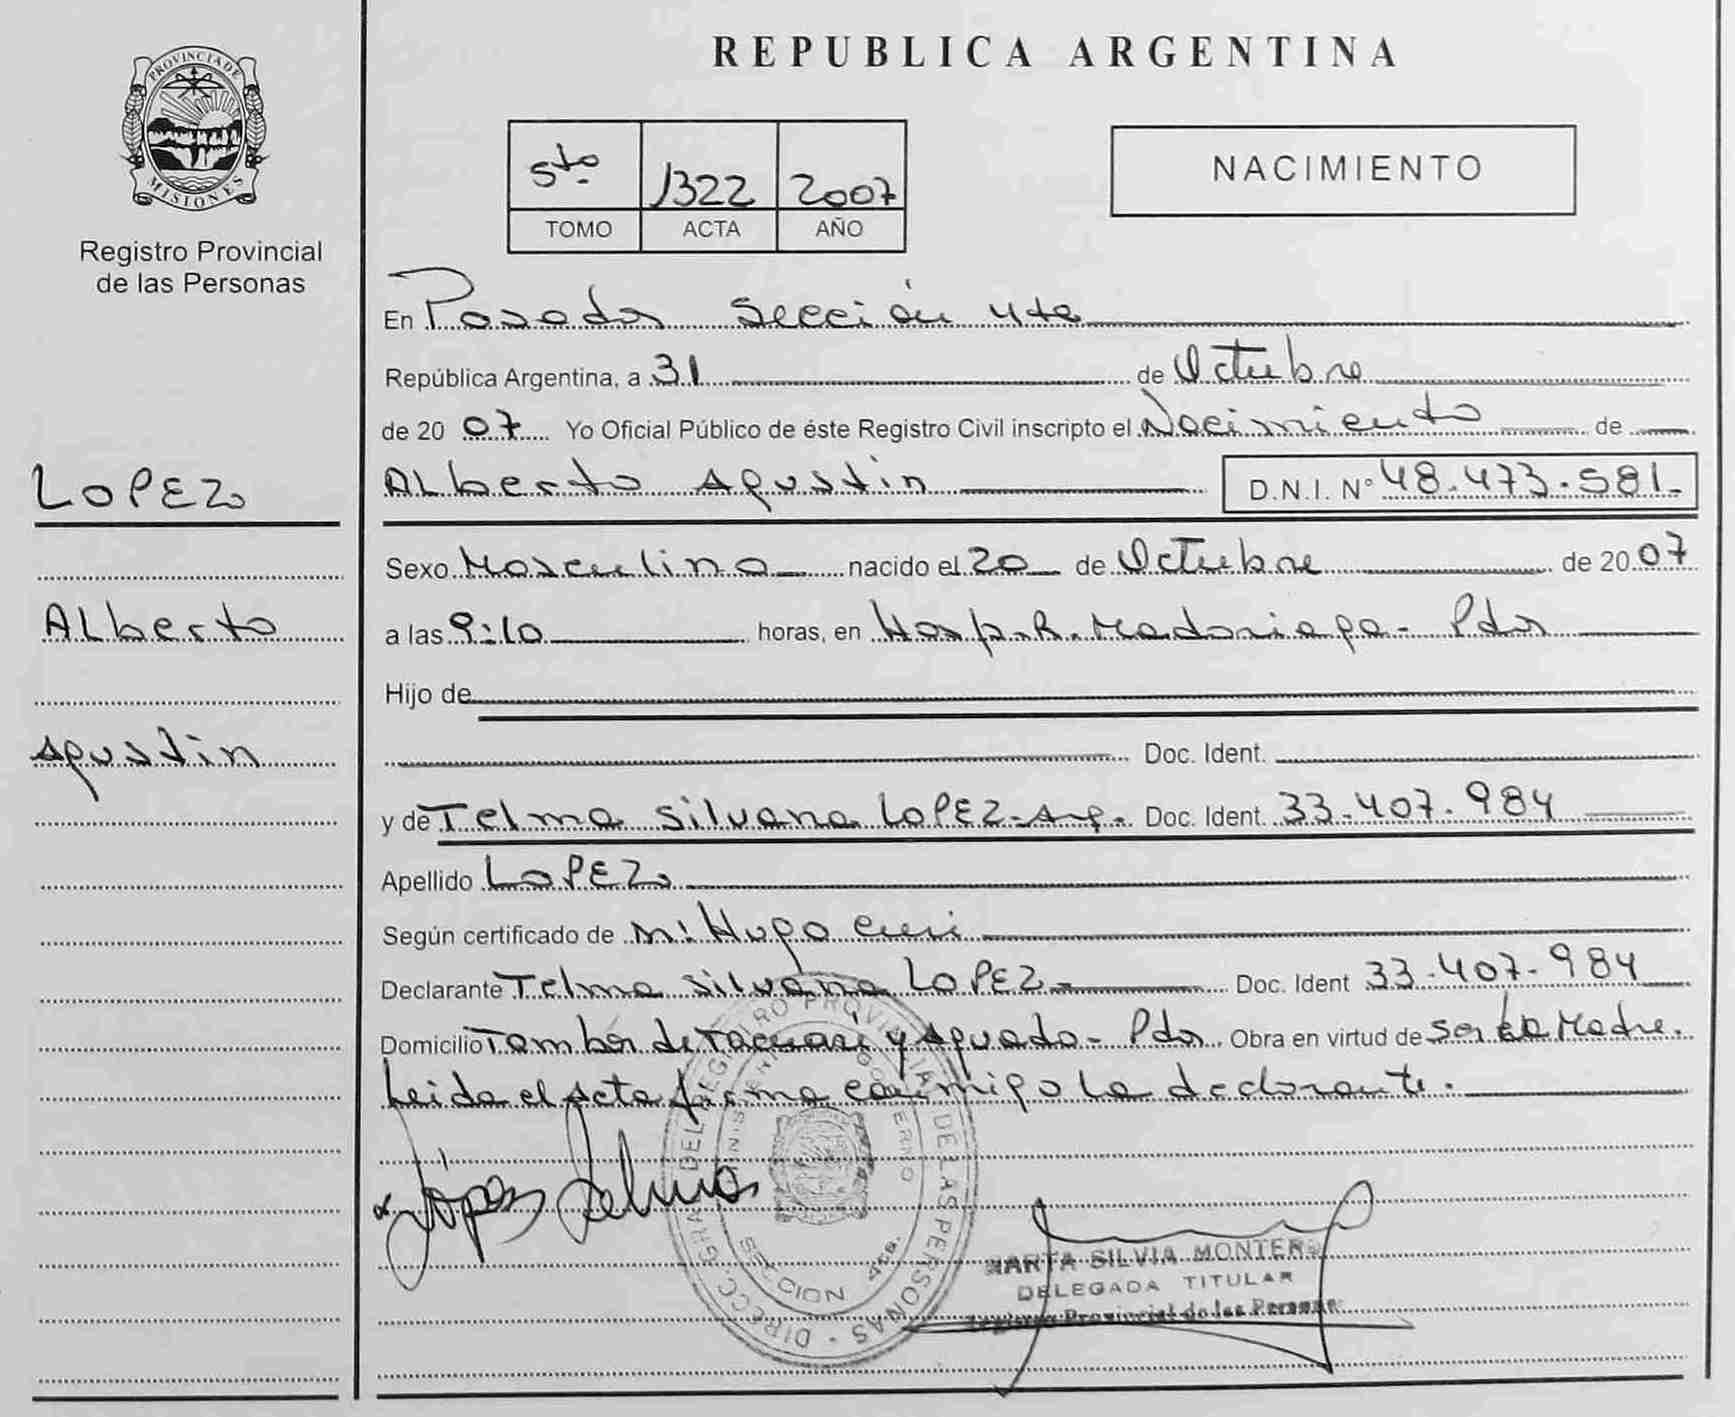 REPUBLICA ARGENTINA
PROVINCIA DE
MISIONES
Registro Provincial
de las Personas
5to 1322 2007
TOMO ACTA AÑO
NACIMIENTO
En Posadas Sección 4ta
República Argentina, a 31 de Octubre
de 20 07 Yo Oficial Público de éste Registro Civil inscripto el Nacimiento de
LOPEZ
Alberto Agustin D.N.I. N° 48.473.581
Sexo Masculino nacido el 20 de Octubre de 20 07
Alberto
a las 9:10 horas, en Hosp. R. Madariaga - Pdas
Hijo de
Agustin
Doc. Ident.
y de Telma Silvana LOPEZ - Arg. Doc. Ident. 33.407.984
Apellido LOPEZ
Según certificado de Hugo
Declarante Telma Silvana LOPEZ - Doc. Ident 33.407.984
Domicilio Tambor de Tacuarí y Aguado - Pdas Obra en virtud de ser la Madre.
Leida el Acta firma conmigo la declarante.
López Telma
DIRECC. GRAL. DEL REGISTRO PROVINCIAL DE LAS PERSONAS
MINISTERIO GOBIERNO
SECCION 4ta.
MARTA SILVIA MONTERO
DELEGADA TITULAR
Registro Provincial de las Personas